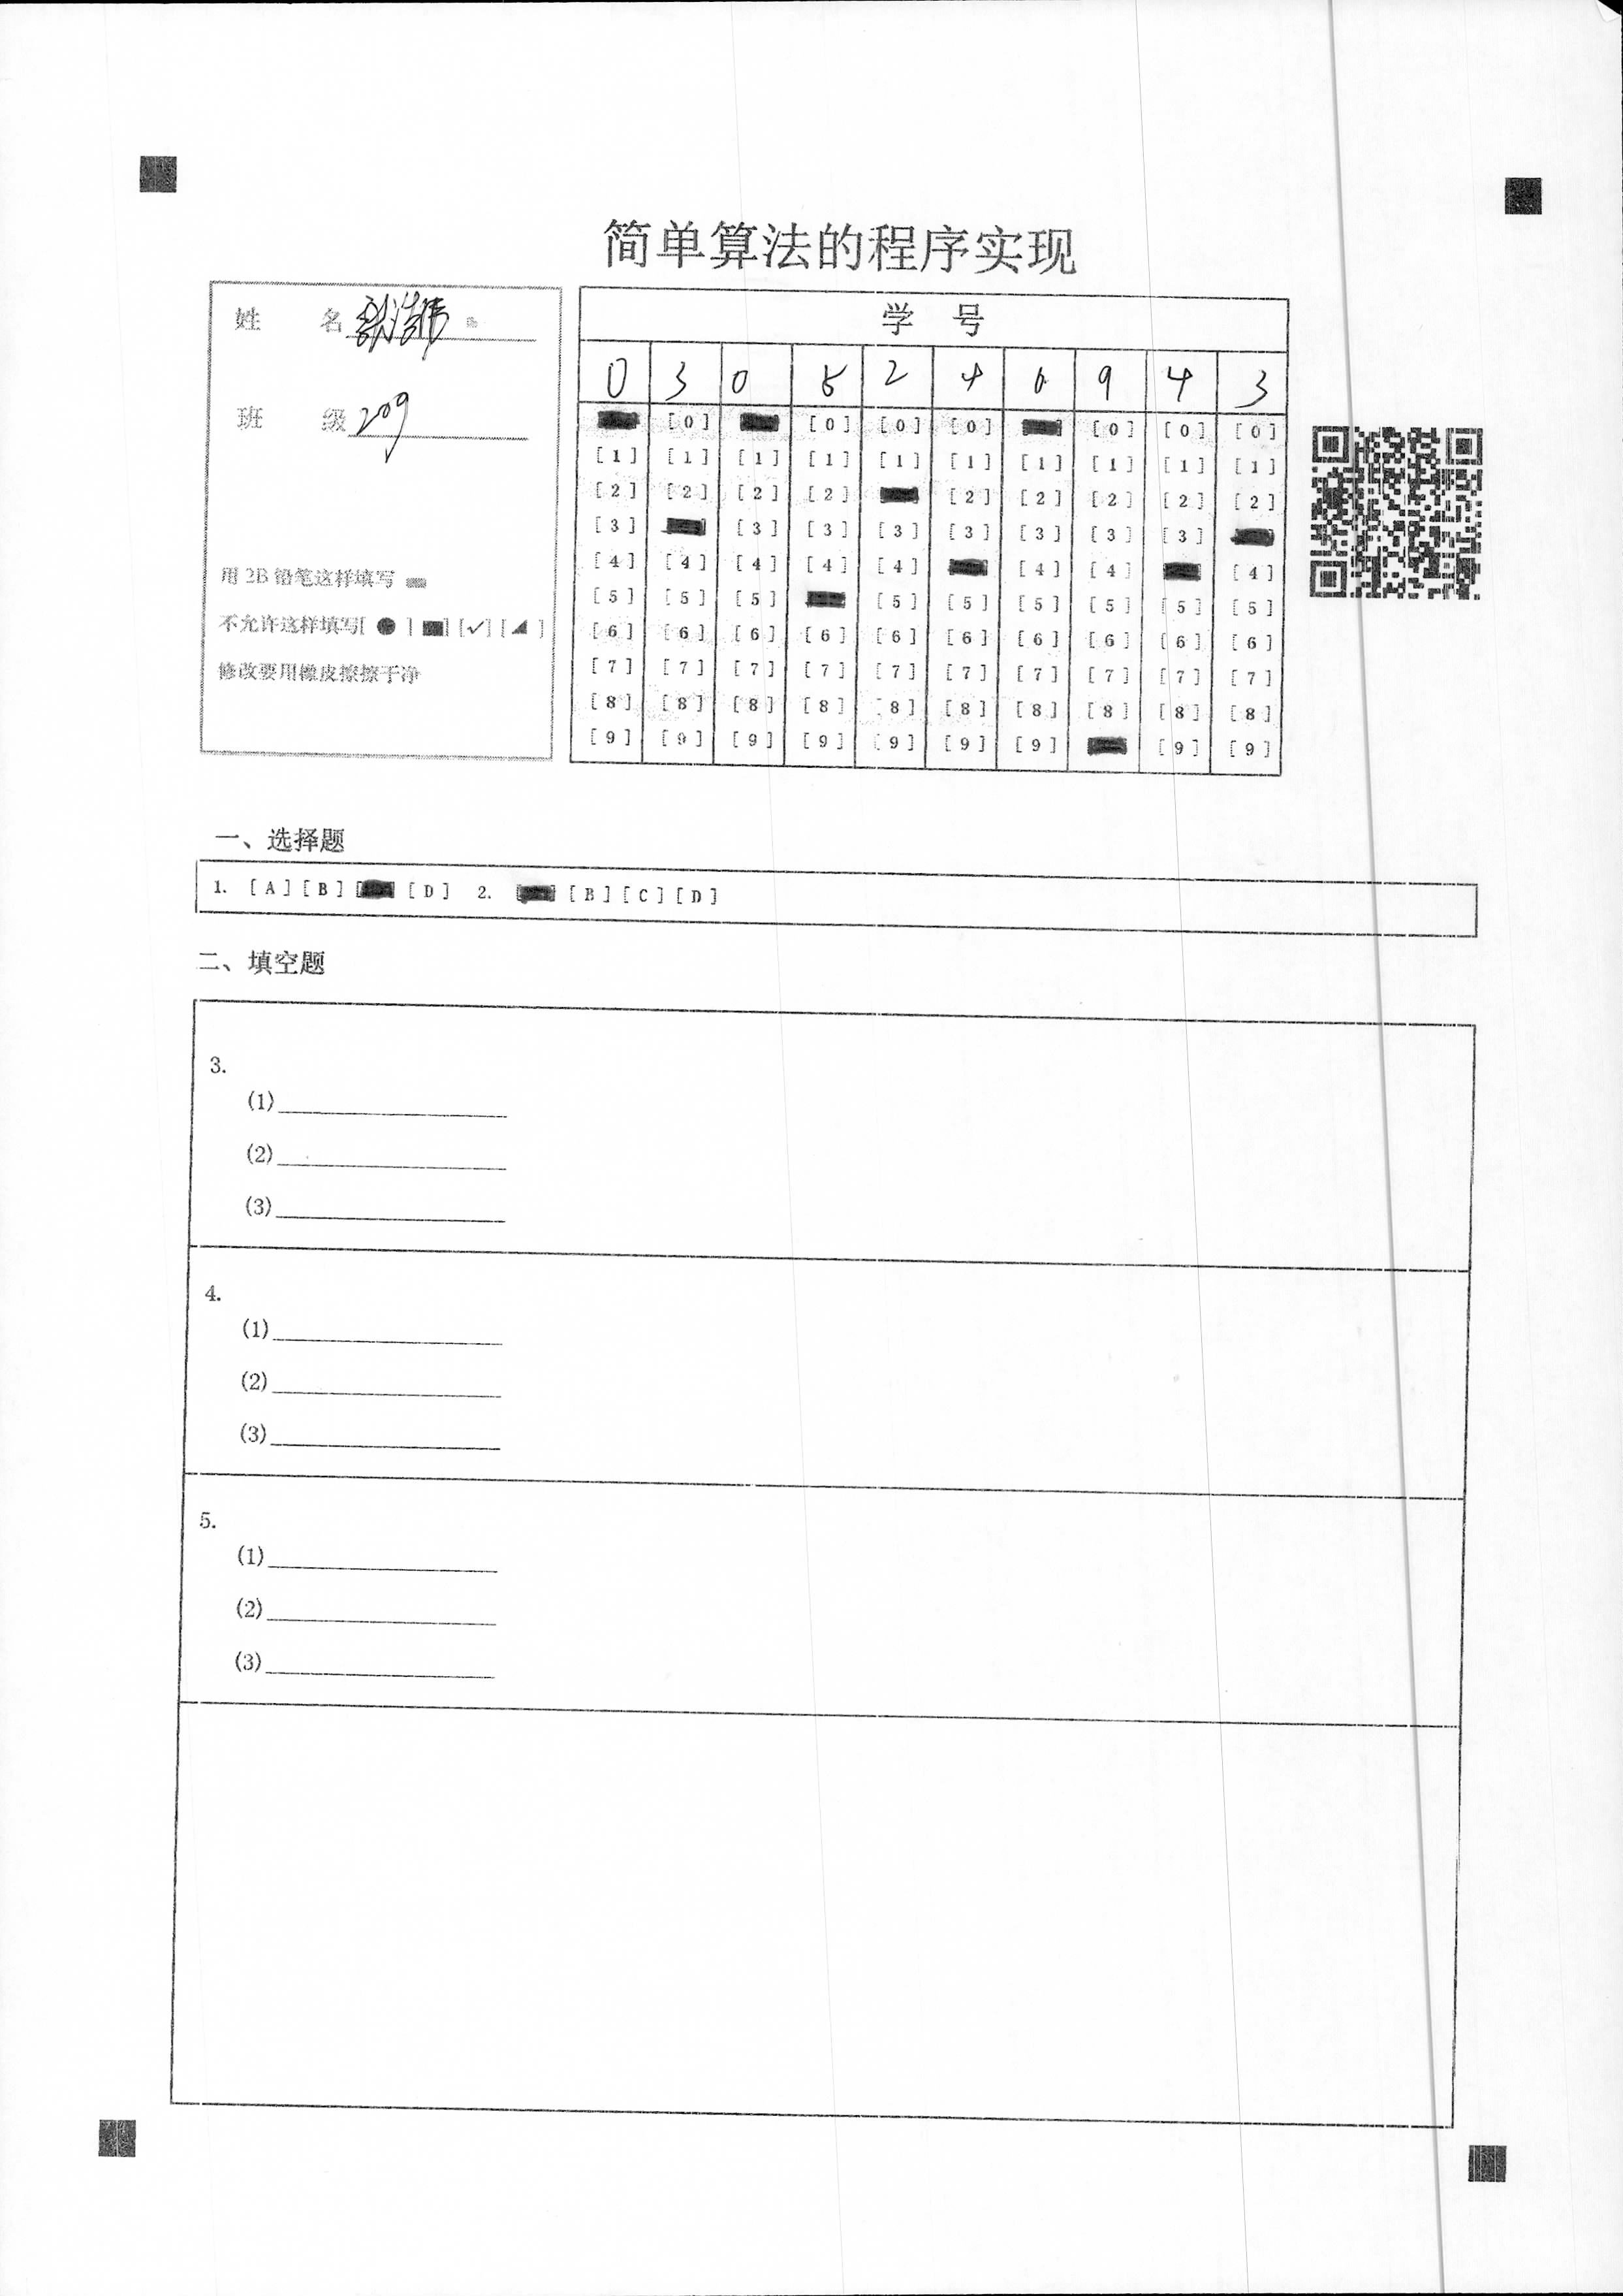 简单算法的程序实现
姓 名 张浩伟
班 级 209
用 2B 铅笔这样填写
不允许这样填写[ ● ] ■] [✓] [◢ ]
修改要用橡皮擦擦干净
学 号
0 3 0 5 2 4 0 9 4 3
[0] [0] [0] [0] [0] [0] [0]
[1] [1] [1] [1] [1] [1] [1] [1] [1] [1]
[2] [2] [2] [2] [2] [2] [2] [2] [2]
[3] [3] [3] [3] [3] [3] [3] [3]
[4] [4] [4] [4] [4] [4] [4] [4]
[5] [5] [5] [5] [5] [5] [5] [5] [5]
[6] [6] [6] [6] [6] [6] [6] [6] [6] [6]
[7] [7] [7] [7] [7] [7] [7] [7] [7] [7]
[8] [8] [8] [8] [8] [8] [8] [8] [8] [8]
[9] [9] [9] [9] [9] [9] [9] [9] [9]
一、选择题
1. [A] [B] [D] 2. [B] [C] [D]
二、填空题
3.
(1)
(2)
(3)
4.
(1)
(2)
(3)
5.
(1)
(2)
(3)